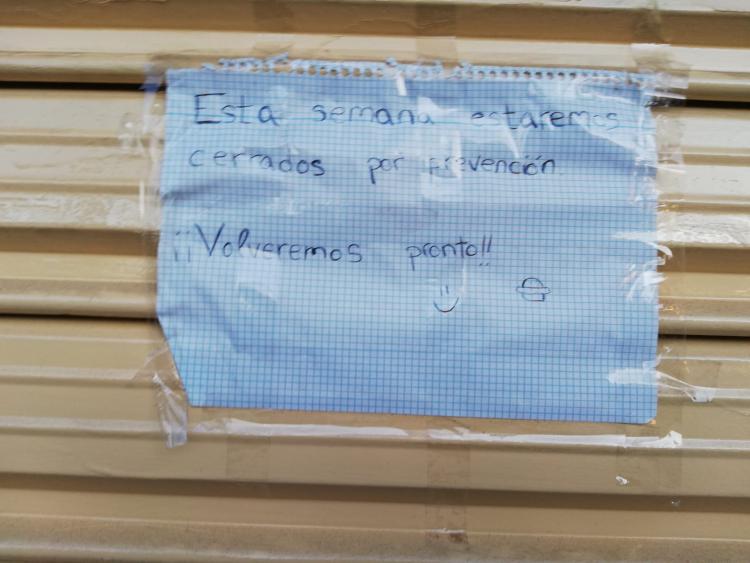 Esta semana estaremos
cerrados por prevención
¡¡Volveremos pronto!!